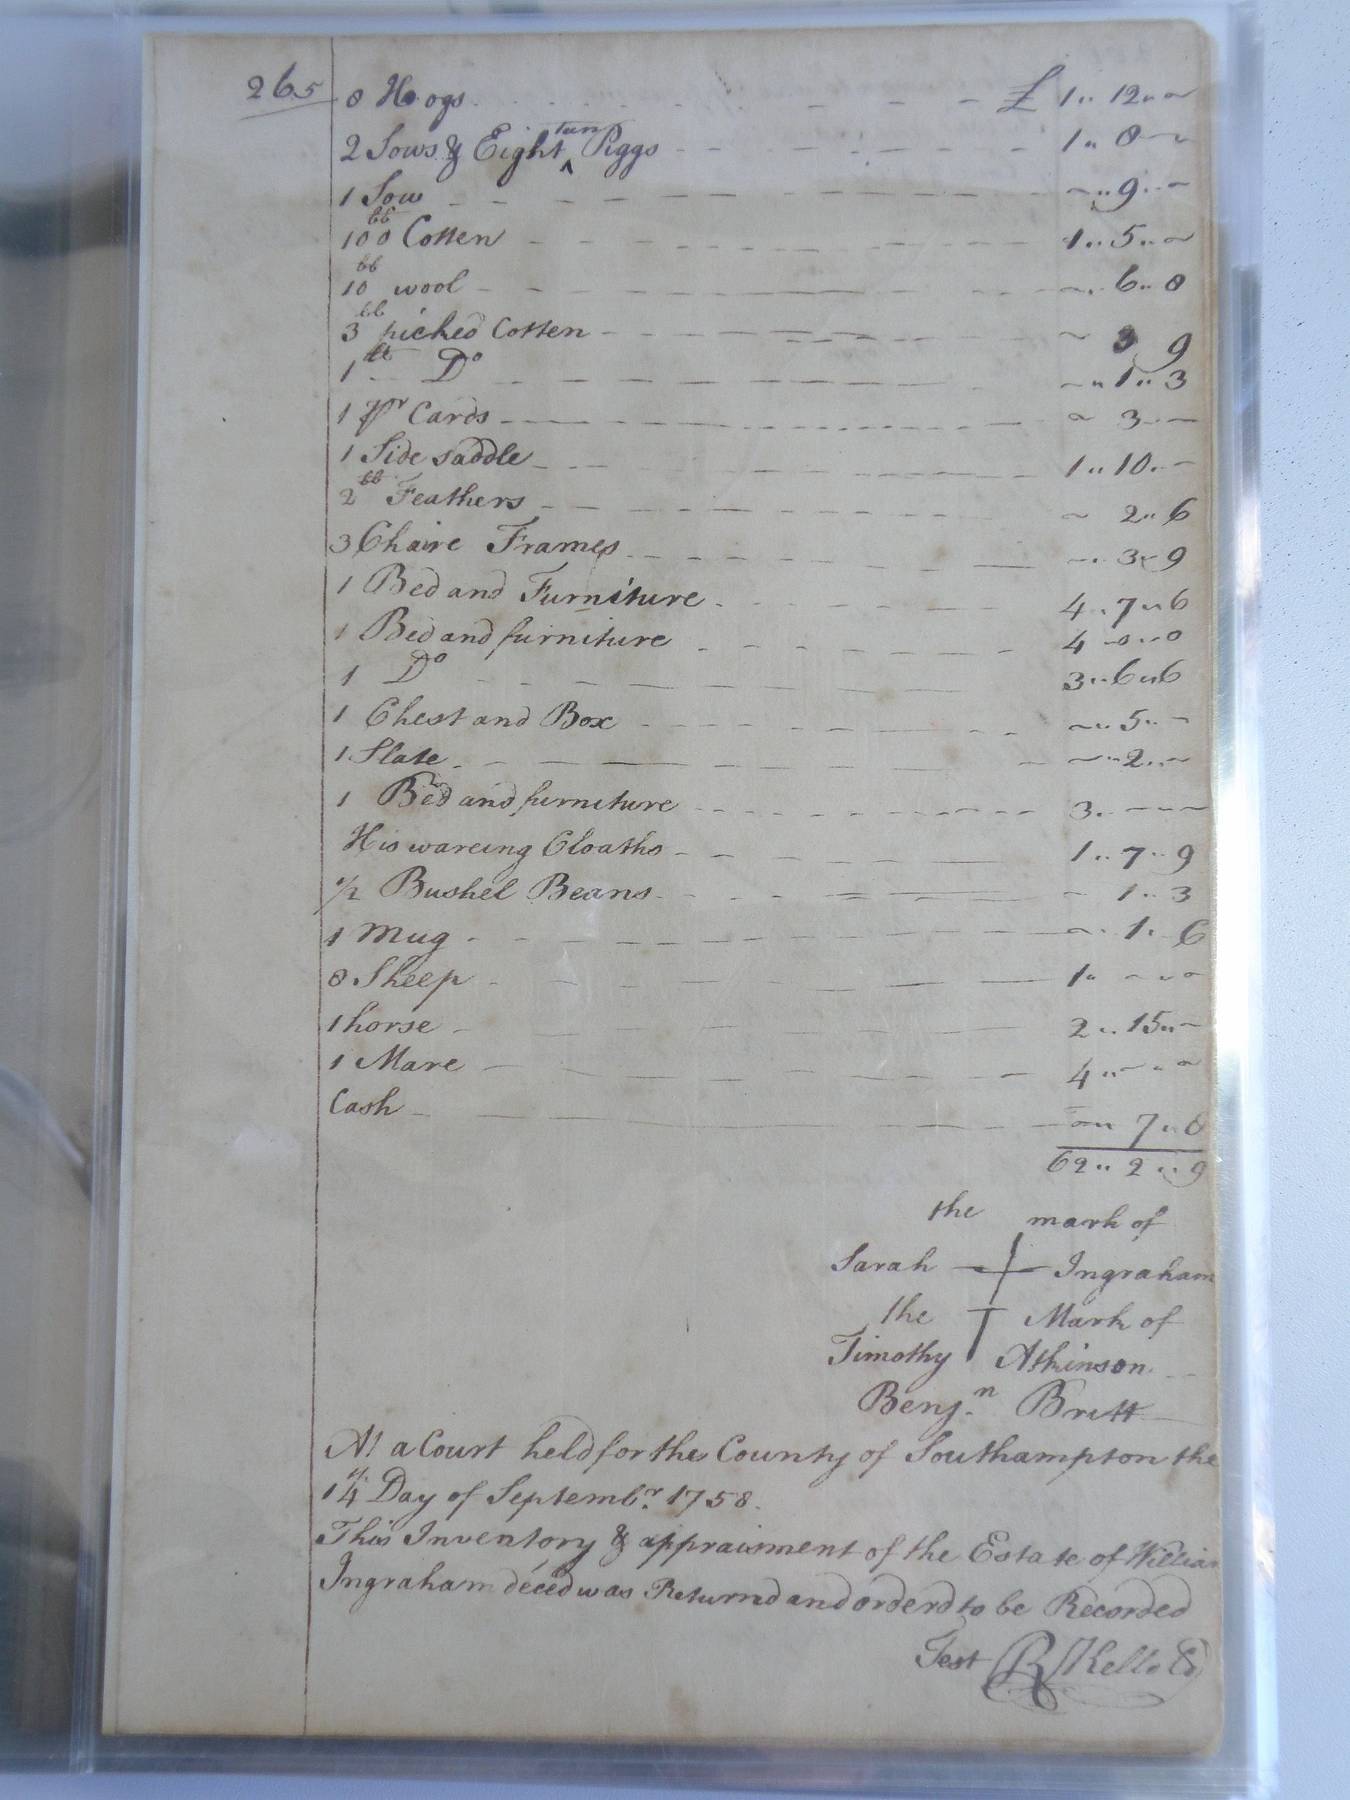 265
8 Hoogs £ 1 „ 12 „ ~
2 Sows & Eight ^teen Piggs 1 „ 8 ~
1 Sow ~ „ 9 „ ~
100 lb Cotten 1 „ 5 „ ~
10 lb wool ~ „ 6 „ 8
3 lb picked Cotten ~ 3 9
1 lb Do ~ „ 1 „ 3
1 pr Cards ~ 3 „ ~
1 Side saddle 1 „ 10 „ ~
2 lb Feathers ~ 2 „ 6
3 Chaire Frames ~ „ 3 „ 9
1 Bed and Furniture 4 „ 7 „ 6
1 Bed and furniture 4 „ 0 „ 0
1 Do 3 „ 6 „ 6
1 Chest and Box ~ „ 5 „ ~
1 Slate ~ „ 2 „ ~
1 Bed and furniture 3 „ ~ „ ~
His wareing Cloaths 1 „ 7 „ 9
1/2 Bushel Beans ~ 1 „ 3
1 Mug ~ „ 1 „ 6
8 Sheep 1 „ ~ „ ~
1 horse 2 „ 15 „ ~
1 Mare 4 „ ~ „ ~
Cash ~ „ 7 „ 8
62 „ 2 „ 9
the mark of
Sarah Ingraham
the Mark of
Timothy Atkinson
Benj.n Britt
At a Court held for the County of Southampton the
14th Day of Septembr 1758.
This Inventory & appraisment of the Estate of William
Ingraham deced was Returnd and orderd to be Recorded
Test R Kello Cl